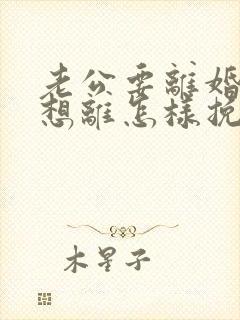 老公要離婚
想離怎樣挽
木星子